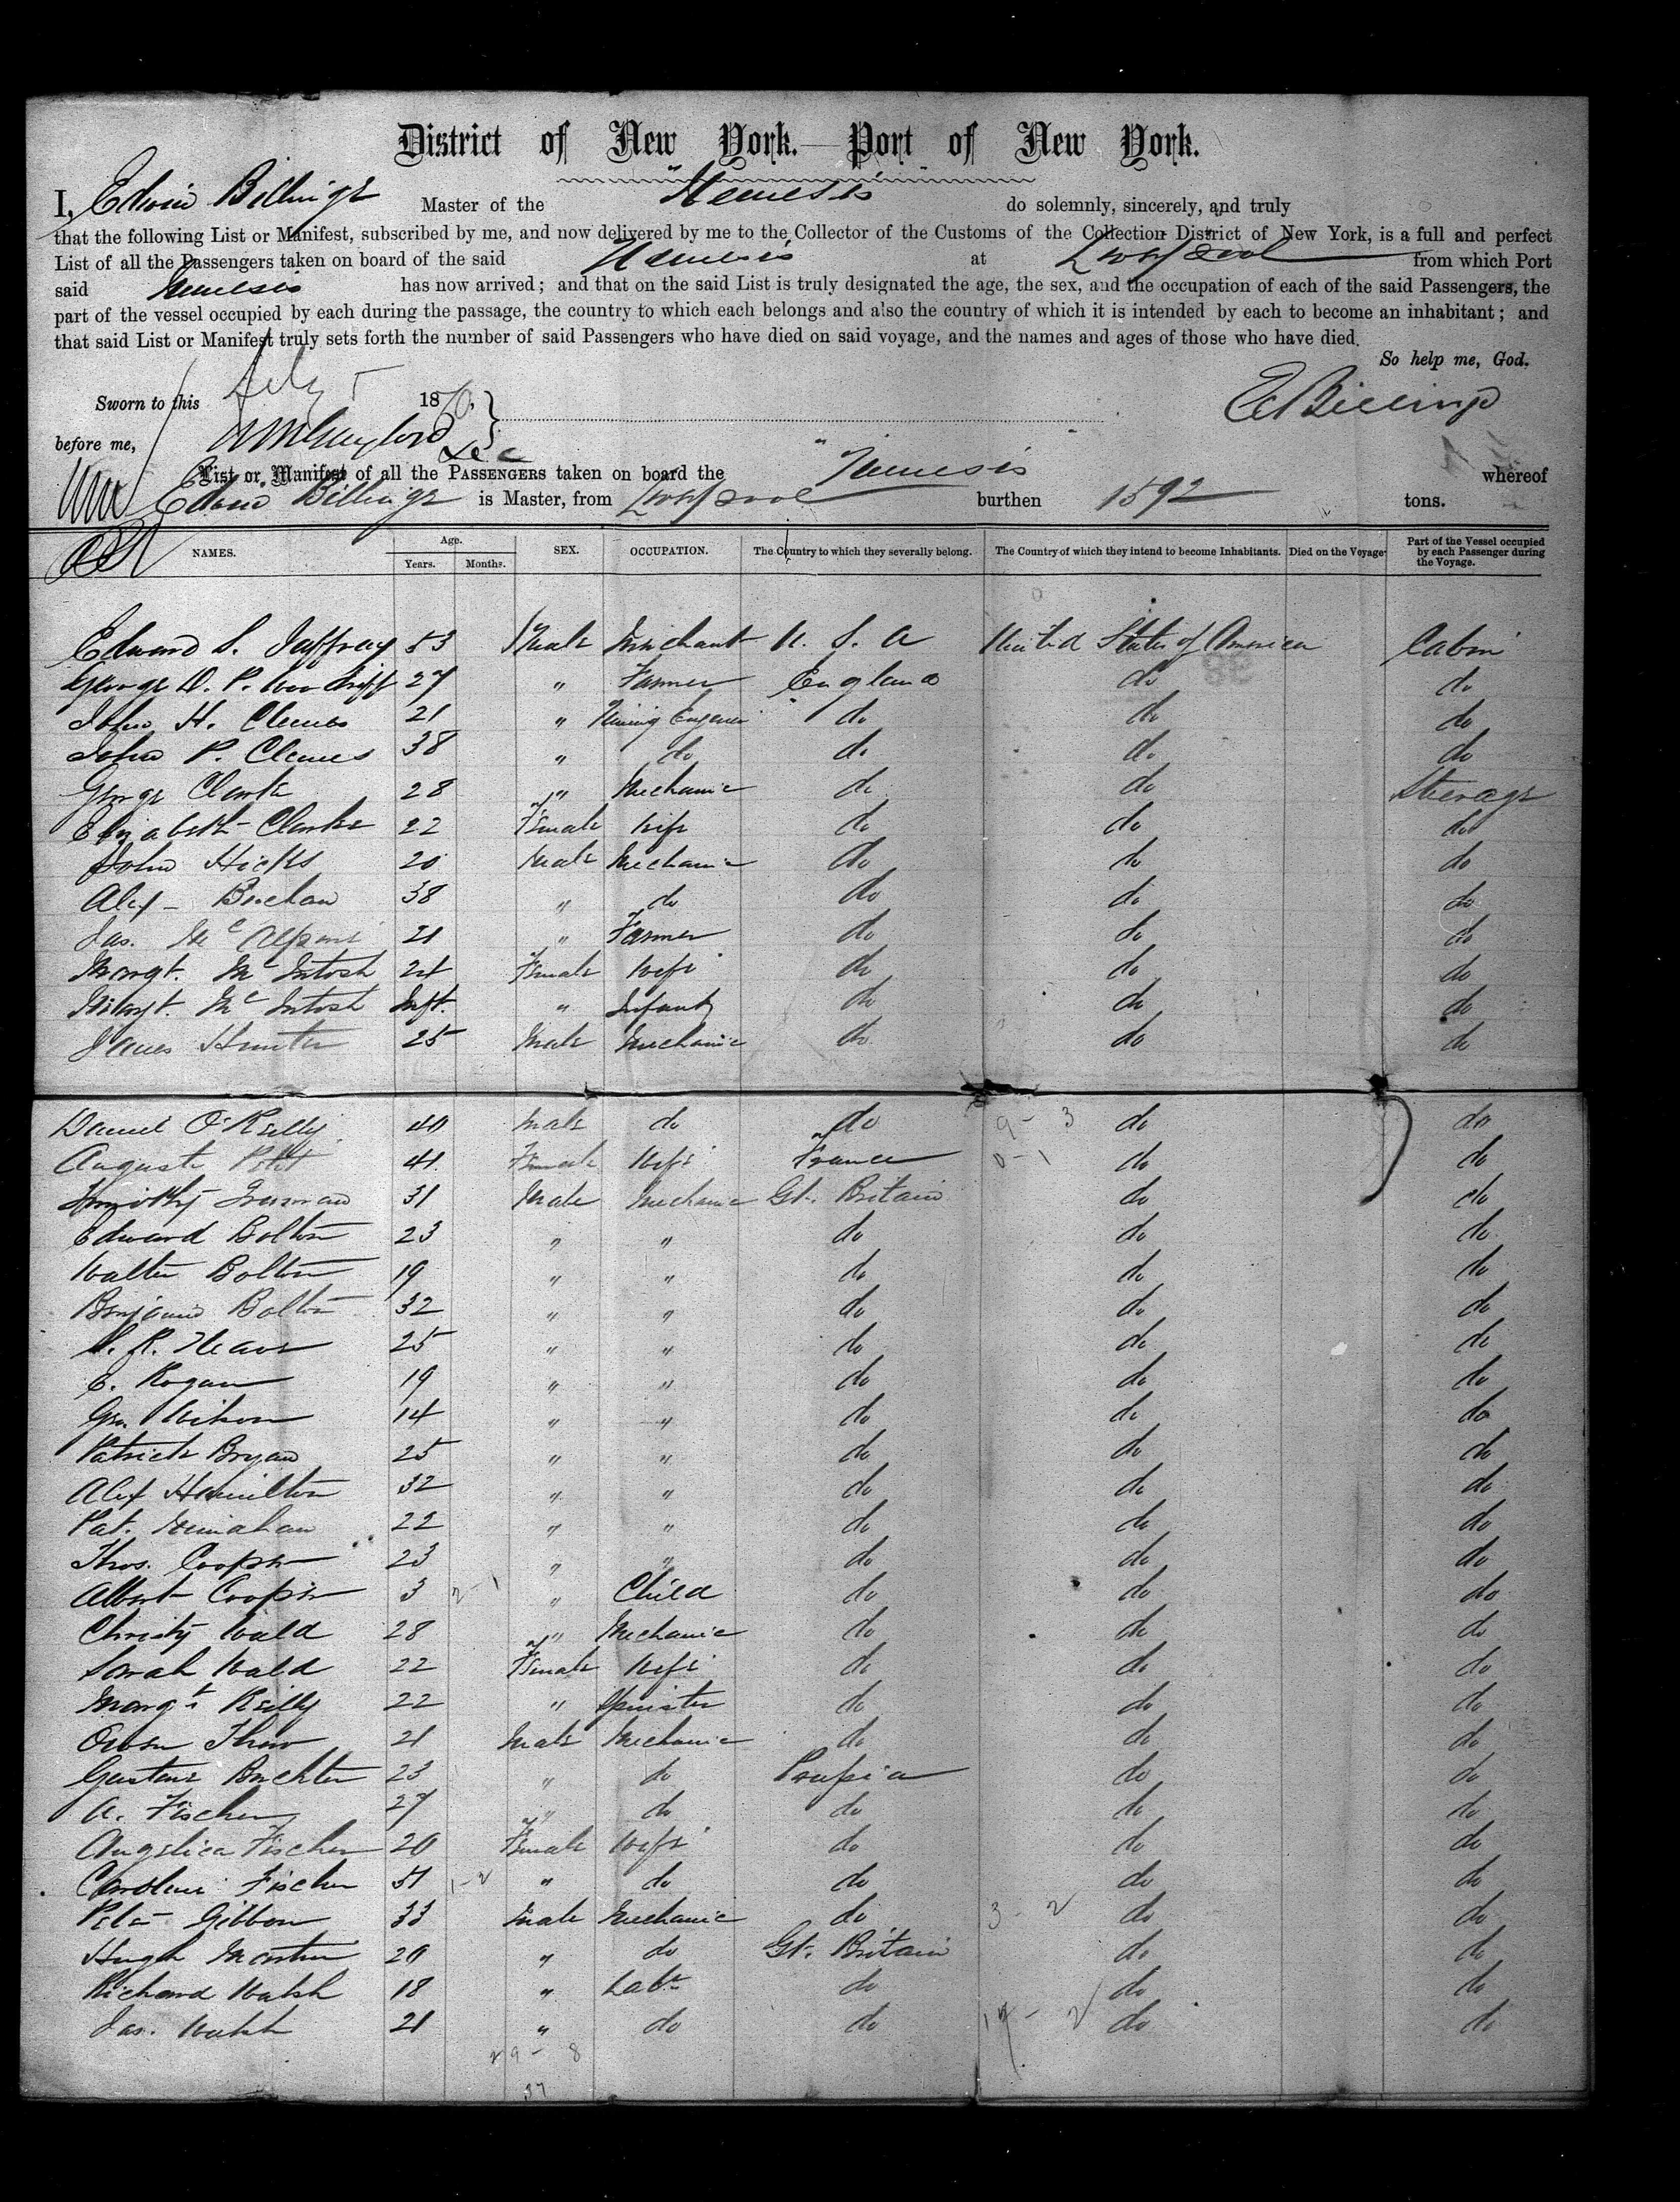 District of New York. Port of New York.
I, Edwin Billings Master of the "Nemesis do solemnly, sincerely, and truly
that the following List or Manifest, subscribed by me, and now delivered by me to the Collector of the Customs of the Collection District of New York, is a full and perfect
List of all the Passengers taken on board of the said Nemesis at Liverpool from which Port
said Nemesis has now arrived; and that on the said List is truly designated the age, the sex, and the occupation of each of the said Passengers, the
part of the vessel occupied by each during the passage, the country to which each belongs and also the country of which it is intended by each to become an inhabitant; and
that said List or Manifest truly sets forth the number of said Passengers who have died on said voyage, and the names and ages of those who have died.
So help me, God.
Sworn to this 18 E Billings
before me,
List or Manifest of all the PASSENGERS taken on board the "Nemesis whereof
Edwin Billings is Master, from Liverpool burthen 1592 tons.
NAMES. Age. Years. Months. SEX. OCCUPATION. The Country to which they severally belong. The Country of which they intend to become Inhabitants. Died on the Voyage Part of the Vessel occupied by each Passenger during the Voyage.
Edward S. Jaffray 53 Male Merchant U. S. A United States of America Cabin
George D. P. 27 " Farmer England do do
John H. Clemes 21 " Mining Engineer do do do
John P. Clemes 38 " do do do do
George Clarke 28 " Mechanic do do Steerage
Elizabeth Clarke 22 Female Wife do do do
John Hicks 20 Male Mechanic do do do
Alex Buchan 38 " do do do do
Jas. McAlpine 21 " Farmer do do do
Margt. McIntosh 24 Female Wife do do do
Margt. McIntosh Inft. " Infant do do do
James Hunter 25 Male Mechanic do do do
Daniel O'Reilly 40 Male do do 9 - 3 do do
Auguste Petit 41 Female Wife France 0 - 1 do do
Timothy 31 Male Mechanic Gt. Britain do do
Edward Bolton 23 " " do do do
Walter Bolton 19 " " do do do
Benjamin Bolton 32 " " do do do
25 " " do do do
Rogan 19 " " do do do
Geo. Wilson 14 " " do do do
Patrick Bryan 25 " " do do do
Alex Hamilton 32 " " do do do
Pat. 22 " " do do do
Thos. Cooper 23 " " do do do
Albert Cooper 3 2 - 1 " Child do do do
Christy Wald 28 " Mechanic do do do
Sarah Wald 22 Female Wife do do do
Margt Reilly 22 " Spinster do do do
Owen 21 Male Mechanic do do do
Gustave 23 " do Prussia do do
A. Fischer 27 " do do do do
Angelica Fischer 20 Female Wife do do do
Caroline Fischer 51 1 - 2 " do do do do
Peter Gibbon 33 Male Mechanic do 3 - 2 do do
Hugh Martin 20 " do Gt. Britain do do
Richard Walsh 18 " Labr do do do
Jas. Walsh 21 " do do 17 - 2 do do
29 - 8
37